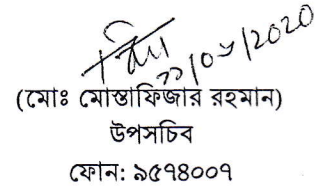 ২২/০৬/2020
(মোঃ মোস্তাফিজার রহমান)
উপসচিব
ফোন: ৯৫৭৪০০৭